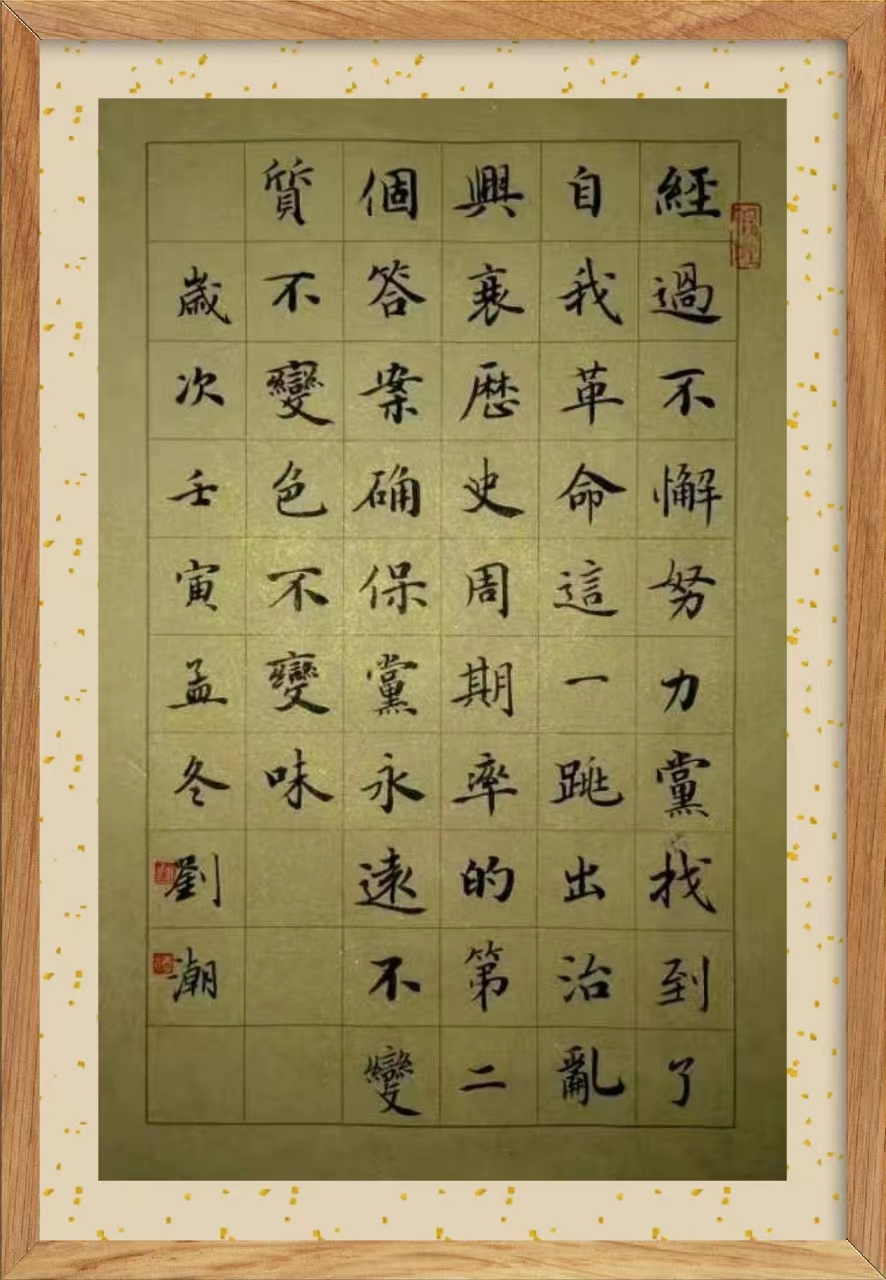 經過不懈努力黨找到了
自我革命這一跳出治亂
興衰歷史周期率的第二
個答案确保黨永遠不變
質不變色不變味
歲次壬寅孟冬劉潮